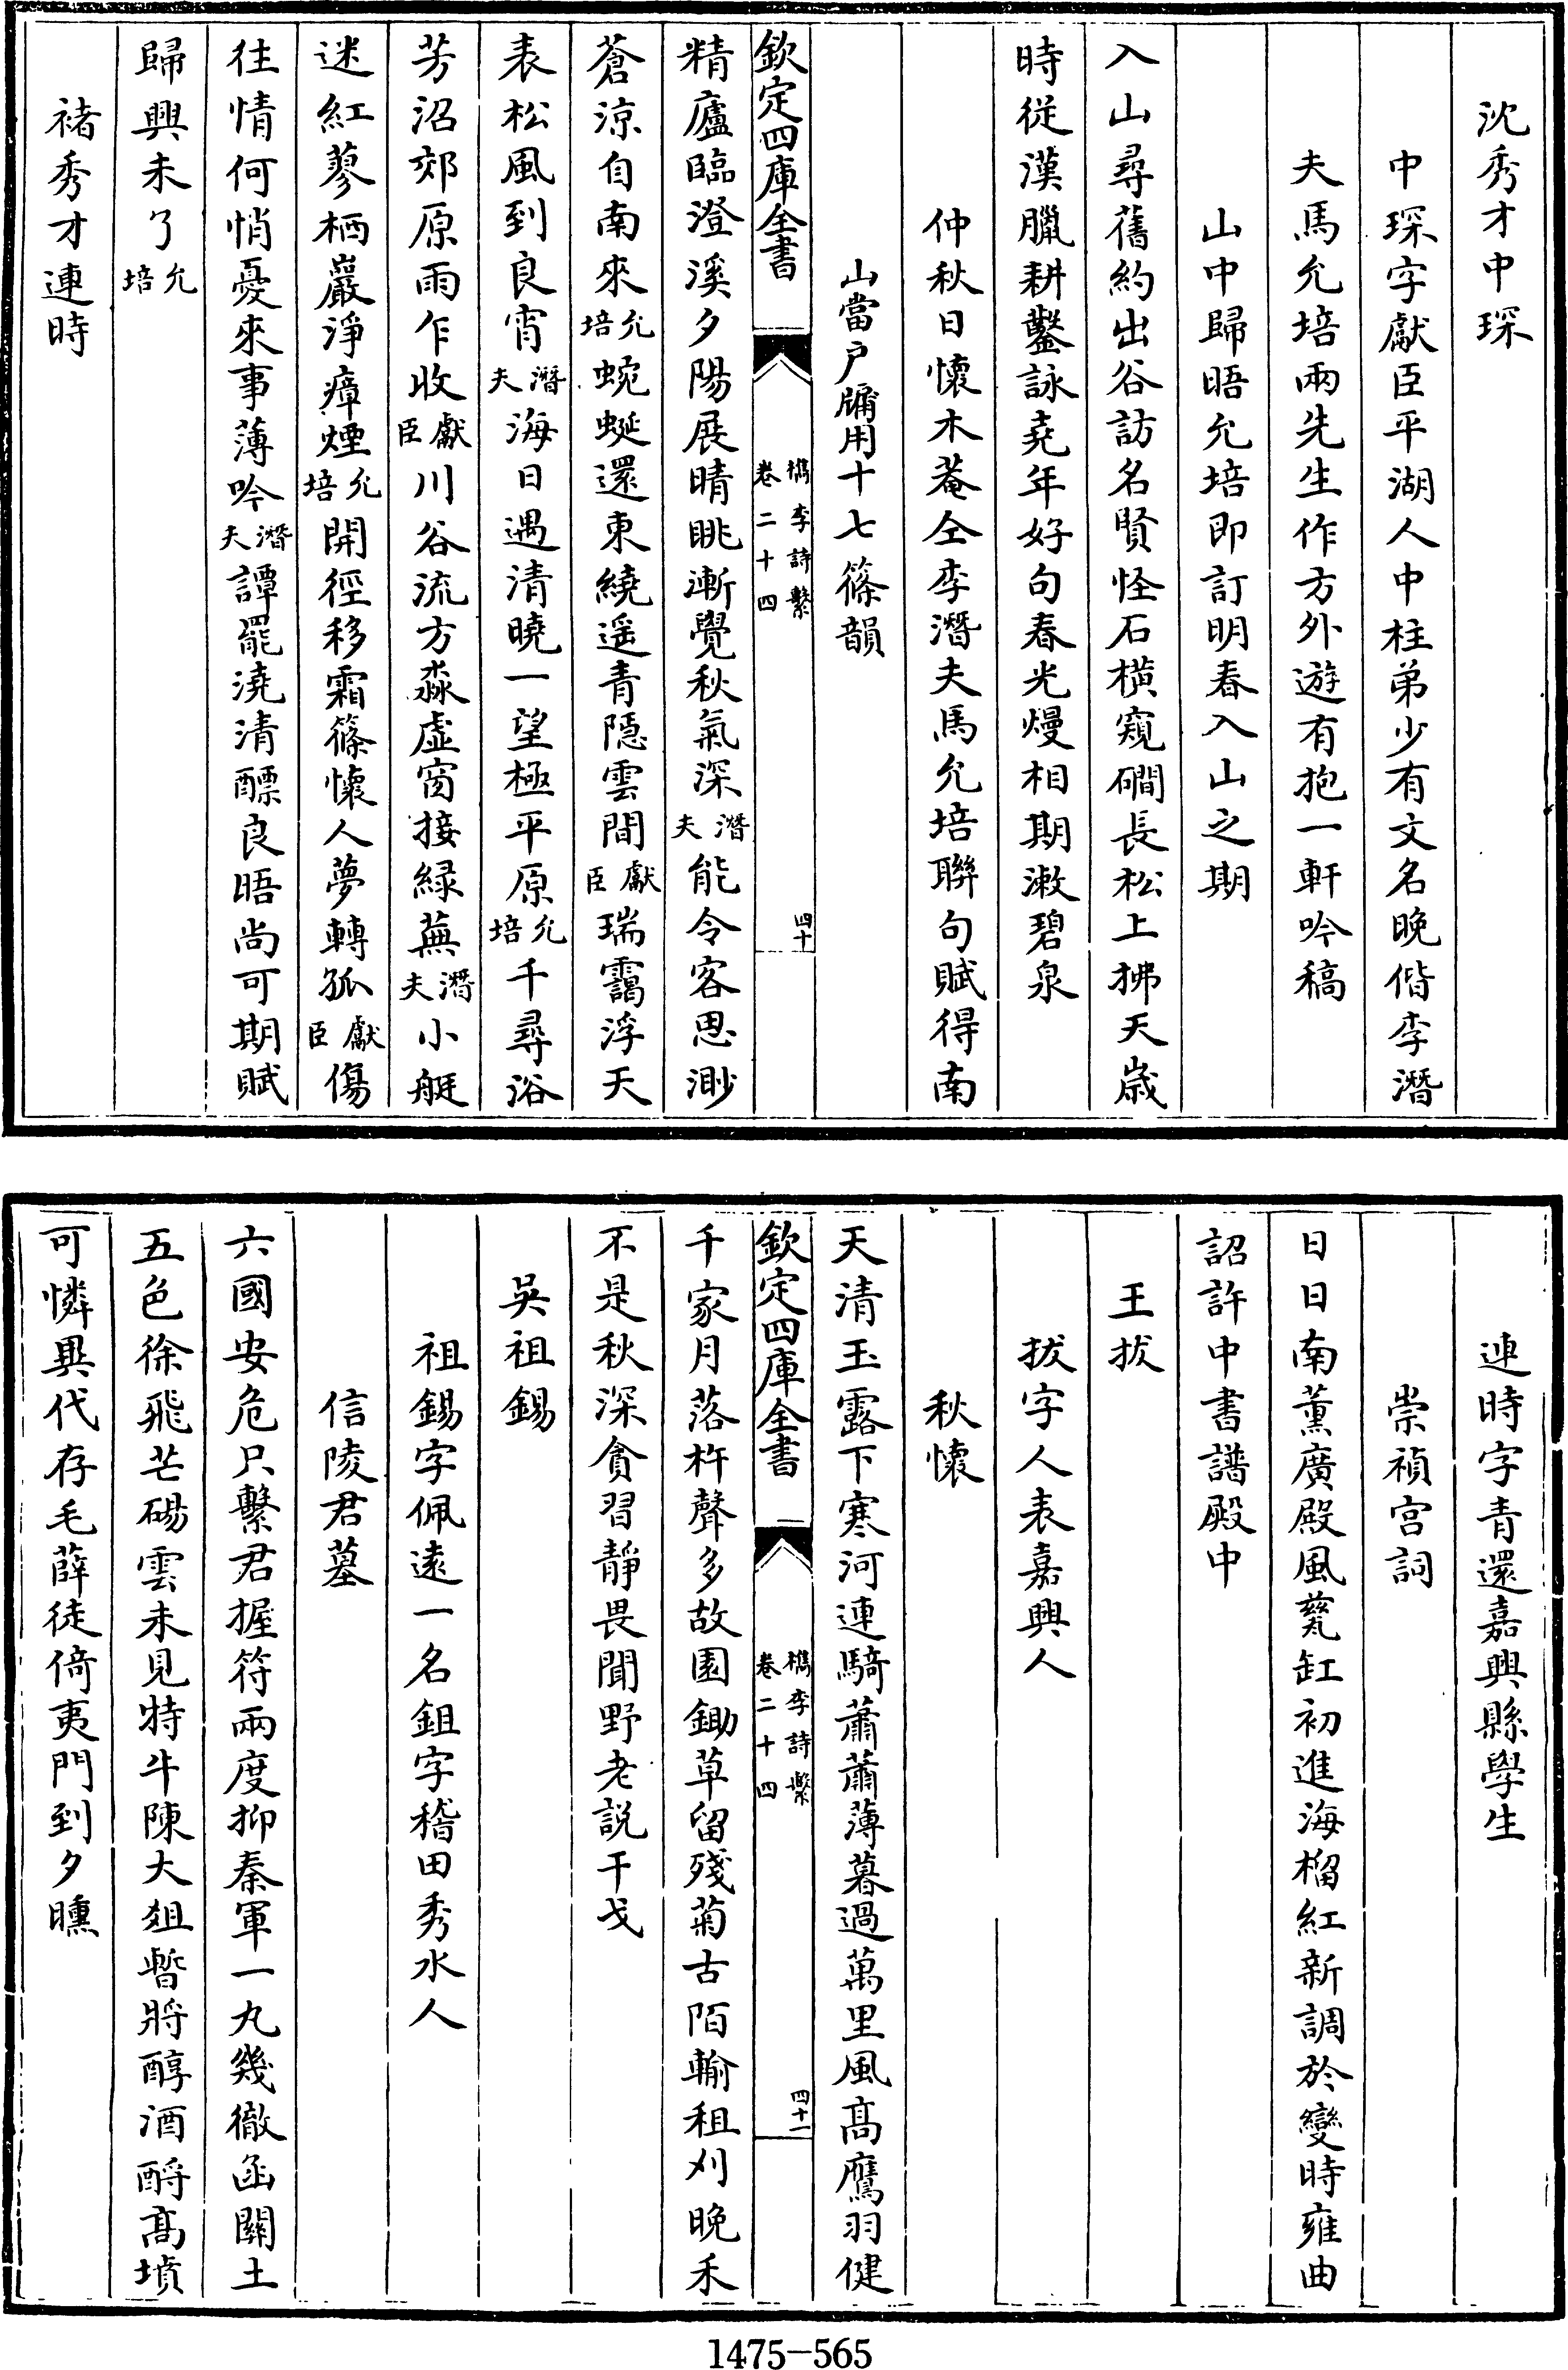 沈秀才中琛
中琛字獻臣平湖人中柱弟少有文名晚偕李潛
夫馬允培兩先生作方外遊有抱一軒吟稿
山中歸晤允培即訂明春入山之期
入山尋舊約出谷訪名賢怪石橫窺磵長松上拂天歲
時從漢臘耕鑿詠堯年好句春光熳相期漱碧泉
仲秋日懷木菴仝李潛夫馬允培聯句賦得南
山當戶牖用十七篠韻
欽定四庫全書
檇李詩繫
卷二十四
四十
精廬臨澄溪夕陽展晴眺漸覺秋氣深潛夫能令客思渺
蒼涼自南來允培蜿蜒還東繞遥青隱雲間獻臣瑞靄浮天
表松風到良宵潛夫海日遇清曉一望極平原允培千尋浴
芳沼郊原雨乍收獻臣川谷流方淼虛窗接綠蕪潛夫小艇
迷紅蓼栖巖淨瘴煙允培開徑移霜篠懷人夢轉孤獻臣傷
往情何悄憂來事薄吟潛夫譚罷澆清醥良晤尚可期賦
歸興未了允培
禇秀才連時
連時字青還嘉興縣學生
崇禎宫詞
日日南薰廣殿風甆缸初進海榴紅新調於變時雍曲
詔許中書譜殿中
王拔
拔字人表嘉興人
秋懷
天清玉露下寒河連騎蕭蕭薄暮過萬里風髙鷹羽健
欽定四庫全書
檇李詩繫
卷二十四
四十一
千家月落杵聲多故園鋤草留殘菊古陌輸租刈晚禾
不是秋深貪習靜畏聞野老説干戈
吳祖錫
祖錫字佩逺一名鉏字稽田秀水人
信陵君墓
六國安危只繫君握符兩度抑秦軍一丸幾徹函關土
五色徐飛芒碭雲未見特牛陳大俎暫將醇酒酹髙墳
可憐異代存毛薛徒倚夷門到夕曛
1475-565